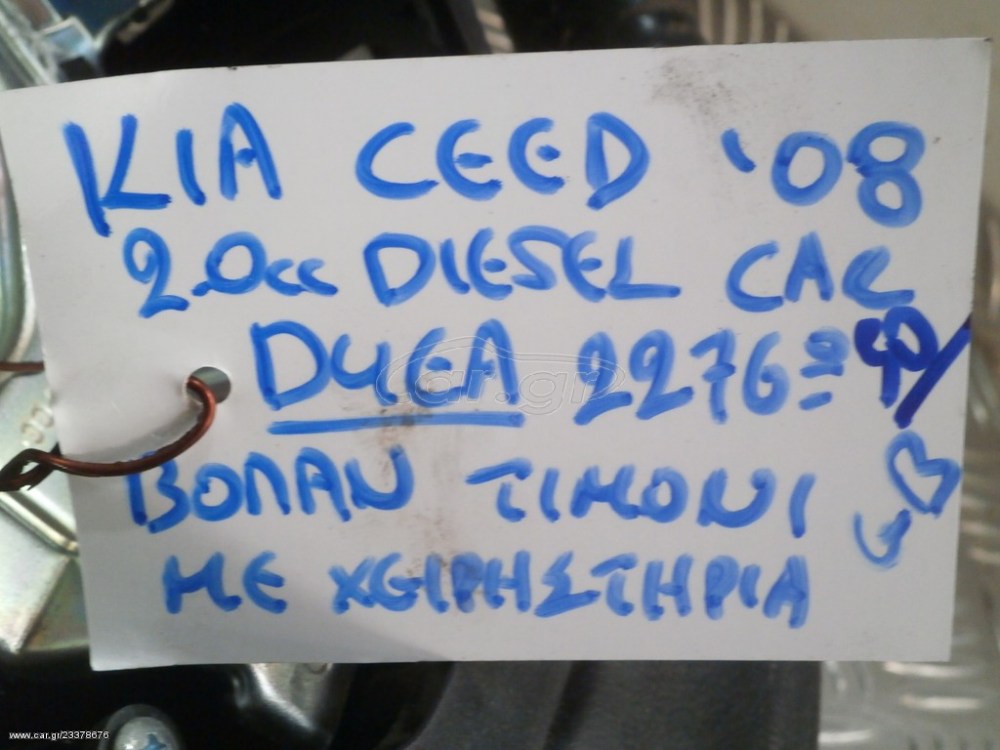 KIA CEED '08
2.0cc DIESEL CAR
car.gr
D4EA 2276
ΒΟΛΑΝ ΤΙΜΟΝΙ
ΜΕ ΧΕΙΡΗΣΤΗΡΙΑ
www.car.gr/23378676